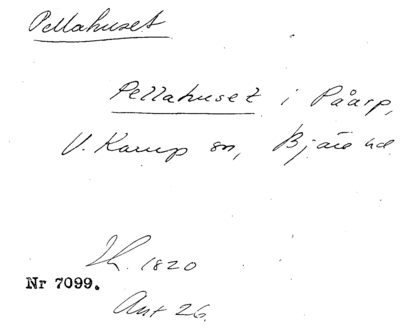 Pellahuset
Pellahuset i Påarp,
V. Karup sn, Bjäre hd.
Th. 1820
Nr 7099.
Ant 26.